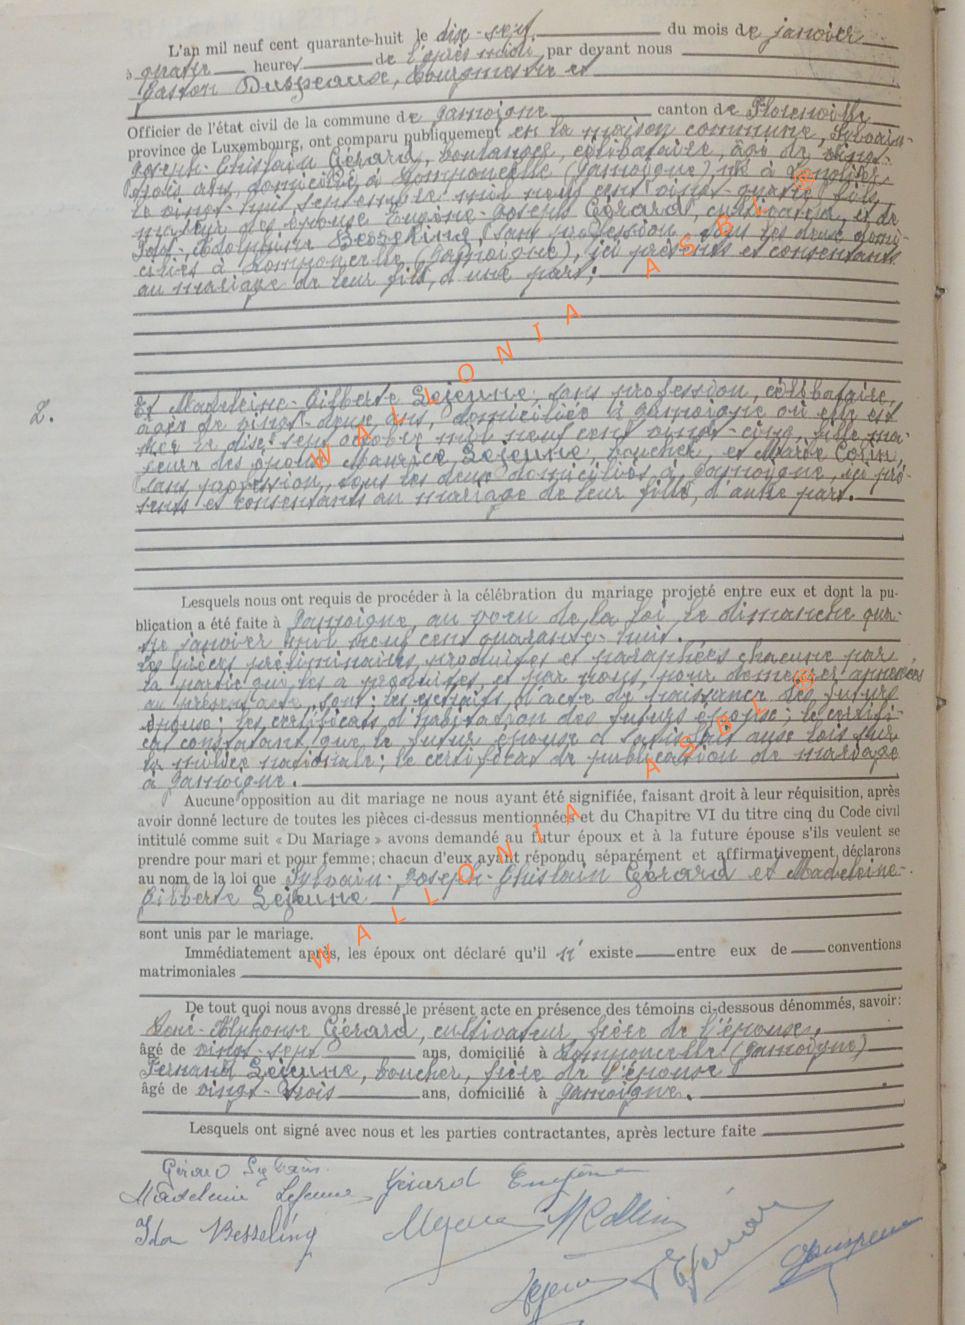 L'an mil neuf cent quarante-huit le dix-sept du mois de janvier
à quatre heures de l'après midi, par devant nous
Gaston Duspeaux, Bourgmestre et
Officier de l'état civil de la commune de Jamoigne canton de Florenville
province de Luxembourg, ont comparu publiquement en la maison commune, Sylvain-
Joseph-Ghislain Gérard, boulanger, célibataire, âgé de vingt-
trois ans, domicilié à Romponcelle (Jamoigne), né à
le vingt-huit septembre mil neuf cent vingt-quatre, fils
majeur des époux Eugène-Joseph Gérard, cultivateur, et de
Ida Besseling, sans profession, tous les deux domi-
ciliés à Romponcelle (Jamoigne), ici présents et consentants
au mariage de leur fils, d'une part;
2.
Et Madeleine-Gilberte Lejeune, sans profession, célibataire,
âgée de vingt-deux ans, domiciliée à Jamoigne où elle est
née le dix-sept octobre mil neuf cent vingt-cinq, fille ma-
jeure des époux Maurice Lejeune, boucher, et Marie Colin,
sans profession, tous les deux domiciliés à Jamoigne, ici pré-
sents et consentants au mariage de leur fille, d'autre part.
Lesquels nous ont requis de procéder à la célébration du mariage projeté entre eux et dont la pu-
blication a été faite à Jamoigne, au vœu de la loi, le dimanche qua-
tre janvier mil neuf cent quarante-huit.
Les pièces préliminaires, produites et paraphées chacune par
la partie qui les a produites, et par nous, pour demeurer annexées
au présent acte, sont: les extraits d'acte de naissance des futurs
époux; les certificats d'habitation des futurs époux; le certifi-
cat constatant que le futur époux a satisfait aux lois sur
la milice nationale; le certificat de publication de mariage
à Jamoigne.
Aucune opposition au dit mariage ne nous ayant été signifiée, faisant droit à leur réquisition, après
avoir donné lecture de toutes les pièces ci-dessus mentionnées et du Chapitre VI du titre cinq du Code civil
intitulé comme suit « Du Mariage » avons demandé au futur époux et à la future épouse s'ils veulent se
prendre pour mari et pour femme; chacun d'eux ayant répondu séparément et affirmativement, déclarons
au nom de la loi que Sylvain-Joseph-Ghislain Gérard et Madeleine-
Gilberte Lejeune
sont unis par le mariage.
Immédiatement après, les époux ont déclaré qu'il n'existe entre eux de conventions
matrimoniales
De tout quoi nous avons dressé le présent acte en présence des témoins ci-dessous dénommés, savoir:
René-Alphonse Gérard, cultivateur, frère de l'époux,
âgé de vingt-sept ans, domicilié à Romponcelle (Jamoigne)
Fernand Lejeune, boucher, frère de l'épouse
âgé de vingt-trois ans, domicilié à Jamoigne.
Lesquels ont signé avec nous et les parties contractantes, après lecture faite
Gérard Sylvain
Madeleine Lejeune Gérard Eugène
Ida Besseling MLejeune M Collin
Lejeune RGérard GDuspeaux
WALLONIA ASBL
WALLONIA ASBL